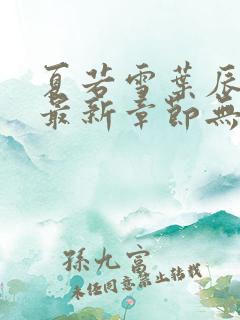 夏若雪葉辰
最新章節無
孫九富
未经同意禁止转载